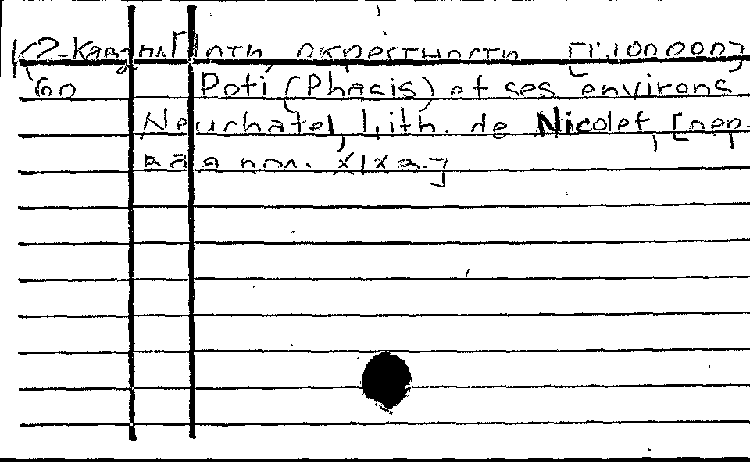 К2-Кавзпи Поти, окрестности [1:100000]
60 Poti (Phasis) et ses environs
Neuchatel, Lith. de Nicolet, [пер-
вая пол. XIX в.]